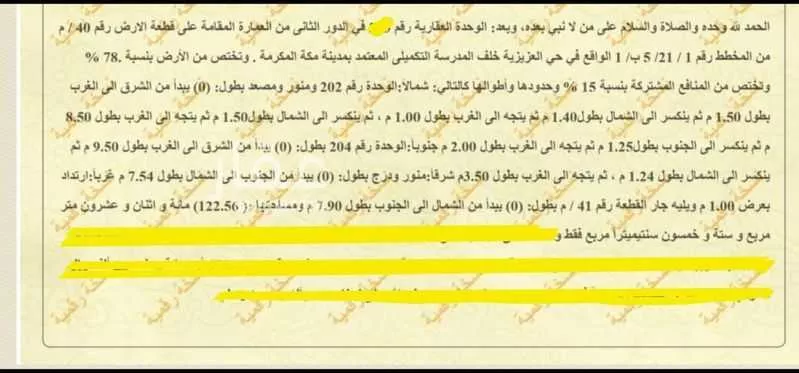 الحمد لله وحده والصلاة والسلام على من لا نبي بعده، وبعد: الوحدة العقارية رقم في الدور الثانى من العمارة المقامة على قطعة الارض رقم 40 / م
من المخطط رقم 1 / 21/ 5 ب/ 1 الواقع في حي العزيزية خلف المدرسة التكميلى المعتمد بمدينة مكة المكرمة . وتختص من الأرض بنسبة .78 %
وتختص من المنافع المشتركة بنسبة 15 % وحدودها وأطوالها كالتالي: شمالا:الوحدة رقم 202 ومنور ومصعد بطول: (0) يبدأ من الشرق الى الغرب
بطول 1.50 م ثم ينكسر الى الشمال بطول1.40 م ثم يتجه الى الغرب بطول 1.00 م ، ثم ينكسر الى الشمال بطول1.50 م ثم يتجه الى الغرب بطول 8.50
م ثم ينكسر الى الجنوب بطول1.25 م ثم يتجه الى الغرب بطول 2.00 م جنوبا:الوحدة رقم 204 بطول: (0) يبدأ من الشرق الى الغرب بطول 9.50 م ثم
ينكسر الى الشمال بطول 1.24 م ، ثم يتجه الى الغرب بطول 3.50م شرقا:منور ودرج بطول: (0) يبدأ من الجنوب الى الشمال بطول 7.54 م غربا:ارتداد
بعرض 1.00 م ويليه جار القطعة رقم 41 / م بطول: (0) يبدأ من الشمال الى الجنوب بطول 7.90 م ومساحتها: ( 122.56) مائة و اثنان و عشرون متر
مربع و ستة و خمسون سنتيميترا مربع فقط و